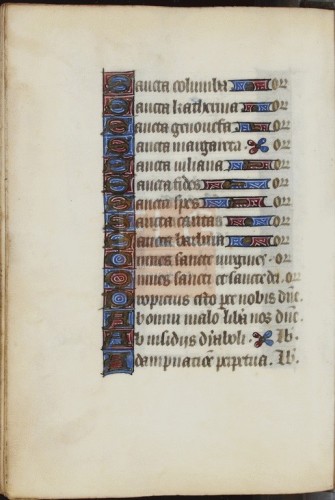 Sancta columba or
Sancta katherina or
Sancta genouefa or
Sancta margareta or
Sancta iuliana or
Sancta fides or
Sancta spes or
Sancta caritas or
Sancta barbara or
Omnes sancte uirgines or
Omnes sancti et sancte dei or
Propicius esto parce nobis dne
Ab omni malo libera nos dne
Ab insidijs dyaboli lb
A dampnatione perpetua lb